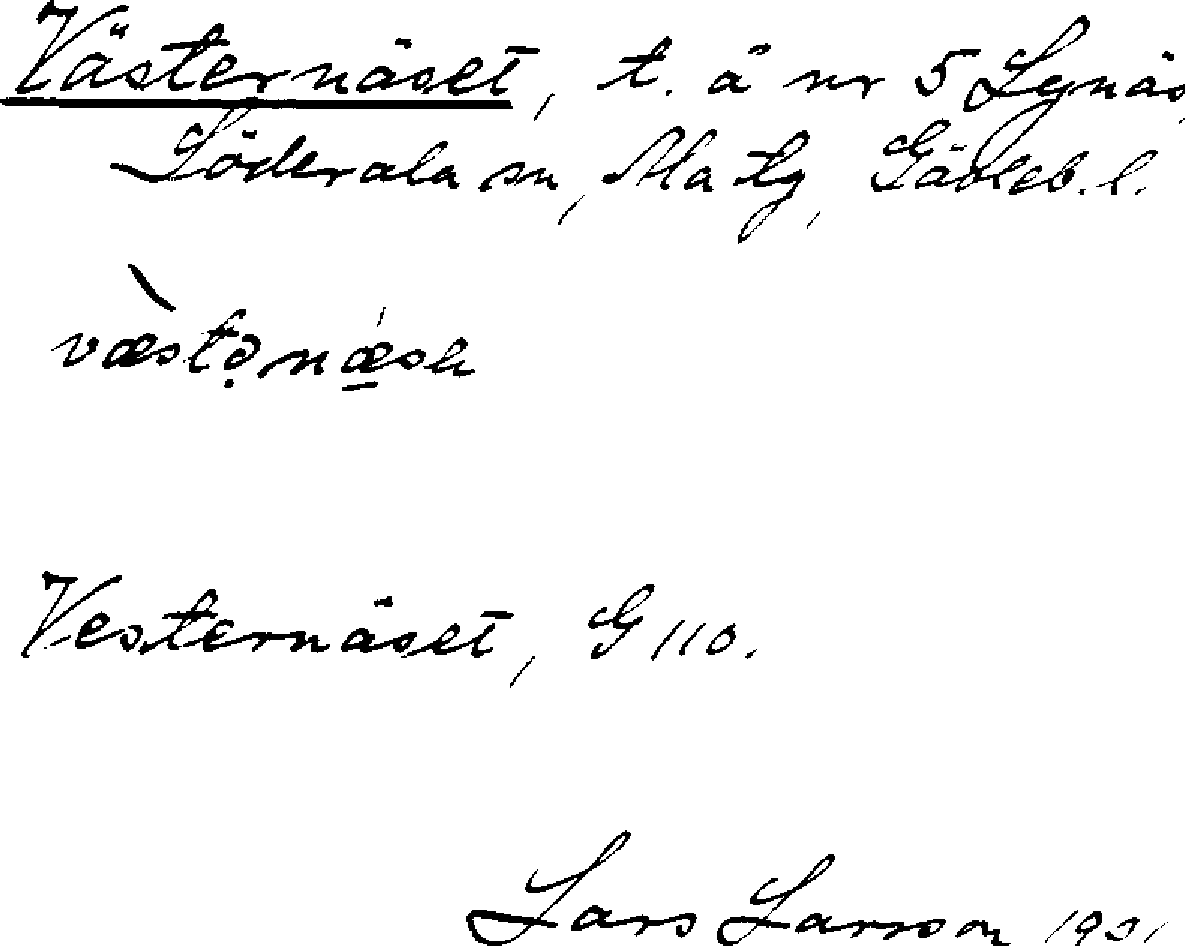 Västernäset, t. å nr 5 Lynäs,
Söderala sn, Ala tg, Gävleb. l.
væ̀stənæ̲sə
Vesternäset, G 110.
Lars Larsson 1931